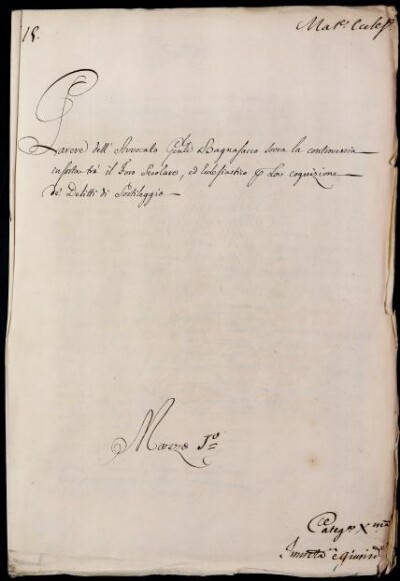 18.
Mat.e Eccles.e
Parere dell' Avvocato Gen.le Bagnasacco sovra la controversia
insorta tra il Foro Secolare, ed Eclesiastico p la cognizione
de' Delitti di Sortileggio
Mazzo J.o
Categ.a X.ma
Immtà e Giurisd.e